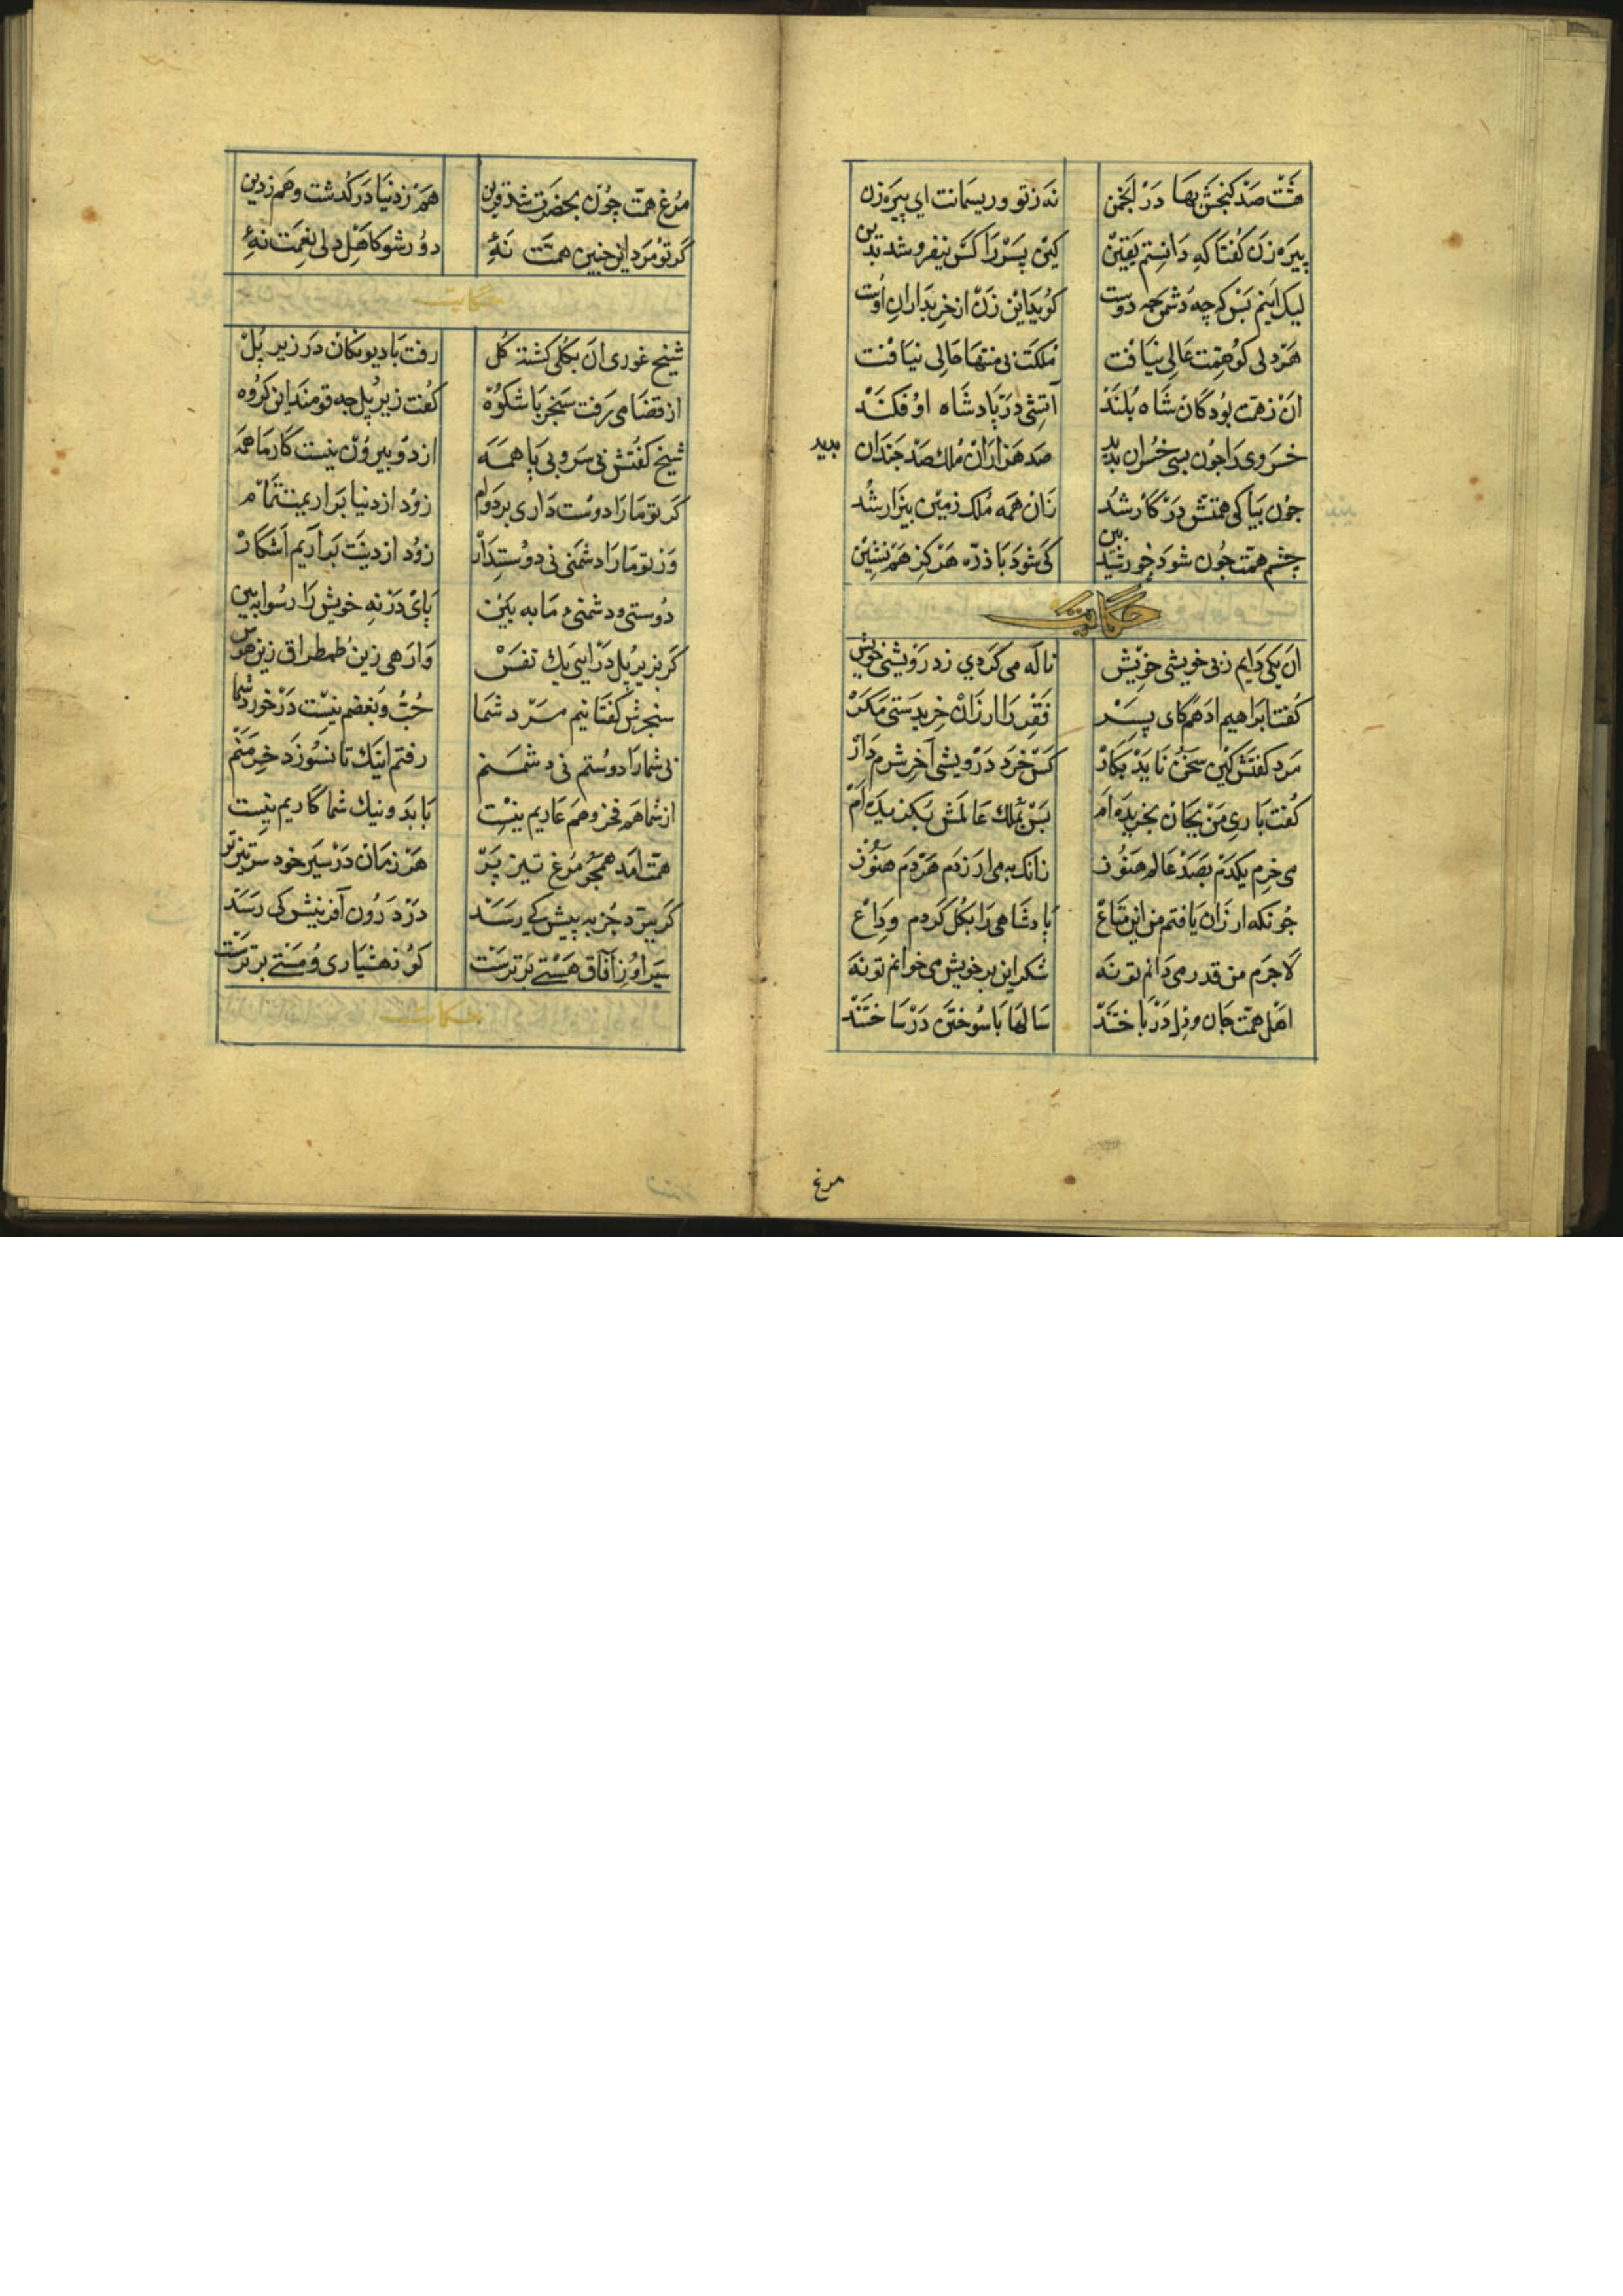 هست صد گنجش بها در انجمن نه زتو وریسمانت ای پیره زن
پیره زن گفتا که دانستم یقین کین پسر را کس نیفروشد بدین
لیک اینم بس که چه دشمن چه دوست گوید این زن از خریداران اوست
هر دلی کو همت عالی نیافت ملکت بی منتها حالی نیافت
آن ز همت بود کان شاه بلند آتشی در پادشاه او فکند
خسروی را چون بسی خسران بدید صد هزاران ملک صد چندان بدید
چون بپاکی همتش در کار شد زان همه ملک زمین بیزار شد
چشم همت چون شود خورشید بین کی شود با ذره هرگز هم نشین
حکایت
آن یکی دایم ز بی خویشی خویش ناله می کردی ز درویشی خویش
گفت ابراهیم ادهم کای پسر فقر را ارزان خریدستی مگر
مرد گفتش کین سخن ناید بکار کس خرد درویشی آخر شرم دار
گفت باری من بجان بخریده ام پس بملک عالمش بگزیده ام
می خرم یکدم بصد عالم هنوز زانک به می ارزدم هر دم هنوز
چونکه ارزان یافتم من این متاع پادشاهی را بکل کردم وداع
لاجرم من قدر می دانم تو نه شکر این بر خویش می خوانم تو نه
اهل همت جان و دل در باختند سالها با سوختن در ساختند
مرغ
مرغ همت چون بحضرت شد قرین هم ز دنیا در گذشت و هم ز دین
گر تو مرد این چنین همت نهٔ دور شو کاهل دلی نعمت نهٔ
حکایت
شیخ غوری آن بکلی گشته کل رفت با دیوانگان در زیر پل
از قضا می رفت سنجر با شکوه گفت زیر پل چه قومند این گروه
شیخ گفتش بی سر و بی پا همه از دو بیرون نیست کار ما همه
گر تو ما را دوست داری بر دوام زود از دنیا بر اریمت تمام
ور تو ما را دشمنی نی دوستدار زود از دینت بر آریم آشکار
دوستی و دشمنی ما به بین پای در نه خویش را رسوا به بین
گر بزیر پل در آیی یک نفس وارهی زین طمطراق زین هوس
سنجرش گفتا نیم مرد شما حب و بغضم نیست در خورد شما
نی شما را دوستم نی دشمنم رفتم اینک تا نسوزد خرمنم
از شما هم فخر و هم عاریم نیست با بد و نیک شما کاریم نیست
همت آمد همچو مرغ تیز پر هر زمان در سیر خود سر تیزتر
گر بپرد جز به پیش کی رسد در درون آفرینش کی رسد
سیر او ز آفاق هستی برترست کو ز هشیاری و مستی برترست
حکایت